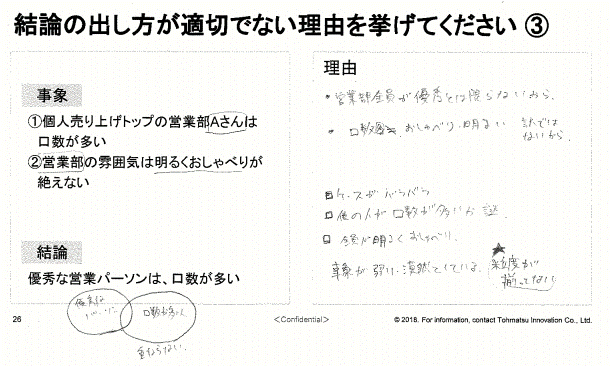 結論の出し方が適切でない理由を挙げてください ③
事象
①個人売り上げトップの営業部Aさんは
口数が多い
②営業部の雰囲気は明るくおしゃべりが
絶えない
結論
優秀な営業パーソンは、口数が多い
理由
・営業部全員が優秀とは限らないから。
・口数 おしゃべり・明るい 訳では
ないから。
□ケースがバラバラ
□他の人が口数が多いか謎。
□全員が明るくおしゃべり。
事象が弱い・漠然としている。★粒度が
揃ってない
優秀な
口数が多い
重ならない。
26
<Confidential>
© 2018. For information, contact Tohmatsu Innovation Co., Ltd.